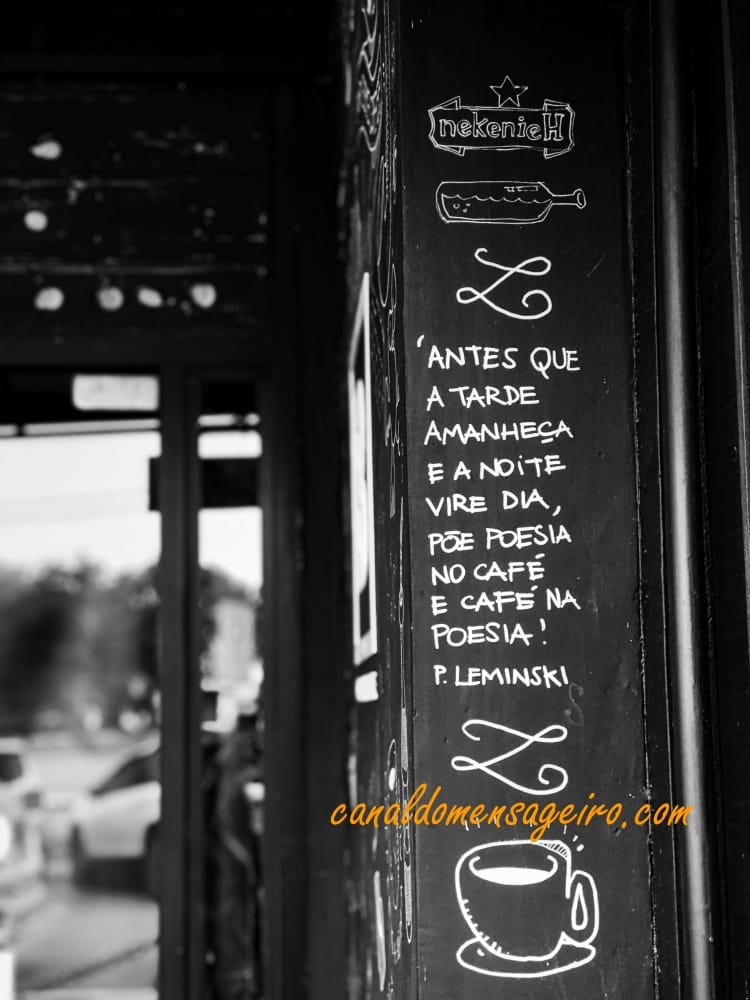 nekenieH
'ANTES QUE
A TARDE
AMANHEÇA
E A NOITE
VIRE DIA,
PÕE POESIA
NO CAFÉ
E CAFÉ NA
POESIA!
P. LEMINSKI
canaldomensageiro.com